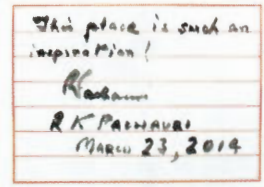 This place is such an
inspiration!
R K PACHAURI
MARCH 23, 2014